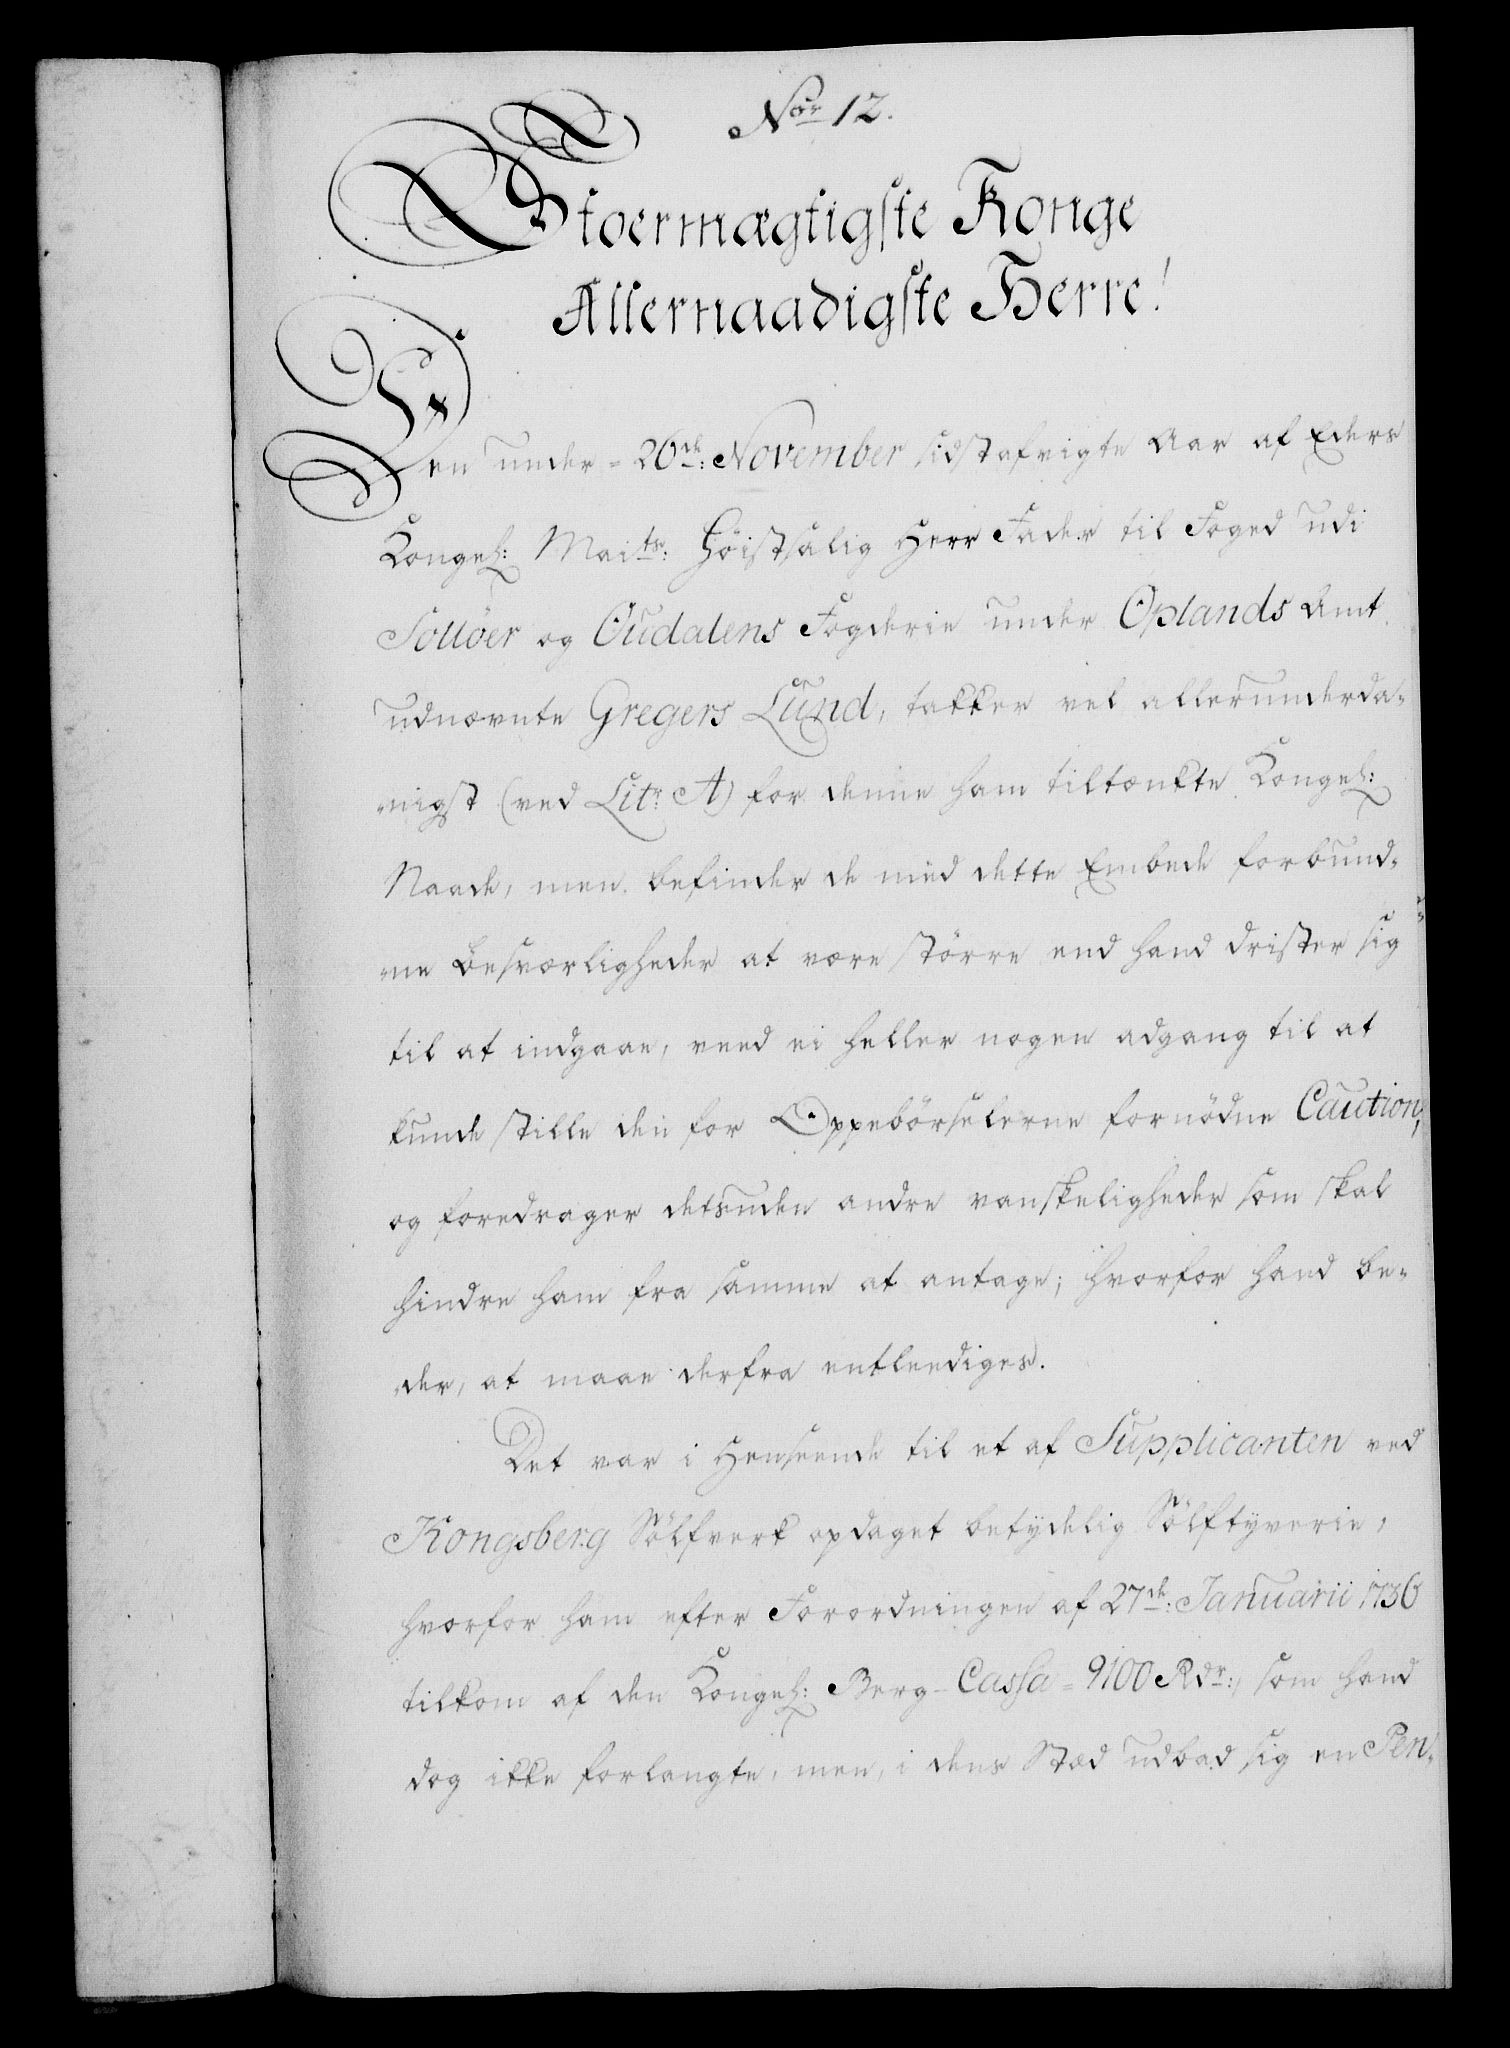 Nor 12.
Stoermægtigste Konge
Allernaadigste Herre!
Den under = 26de: November sidstafvigte Aar af Eders
Kongel: Maits: Höistsalig Herr Fader til Foged udi
Sollöer og Oudalens Fogderie under Oplands Amt
udnævnte Gregers Lund, takker vel allerunderda-
nigst (ved Litr A) for denne ham tiltænkte Kongel:
Naade, men befinder de med dette Embede forbund-
ne Besværligheder at være större end hand drister sig
til at indgaae, veed ei heller nogen adgang til at
kunde stille den for Oppebörselerne fornödne Caution,
og foredrager desuden andre vanskeligheder som skal
hindre ham fra samme at antage; hvorfor hand be-
der, at maae derfra entleediges.
Det var i Henseende til et af Supplicanten ved
Kongsberg Sölfverk opdaget betydelig Sölftyverie,
hvorfor ham efter Forordningen af 27de: Januarii 1736
tilkom af den Kongel: Berg-Cassa = 9100 Rdr:, som hand
dog ikke forlangte, men, i dens Stæd udbad sig en Pen-